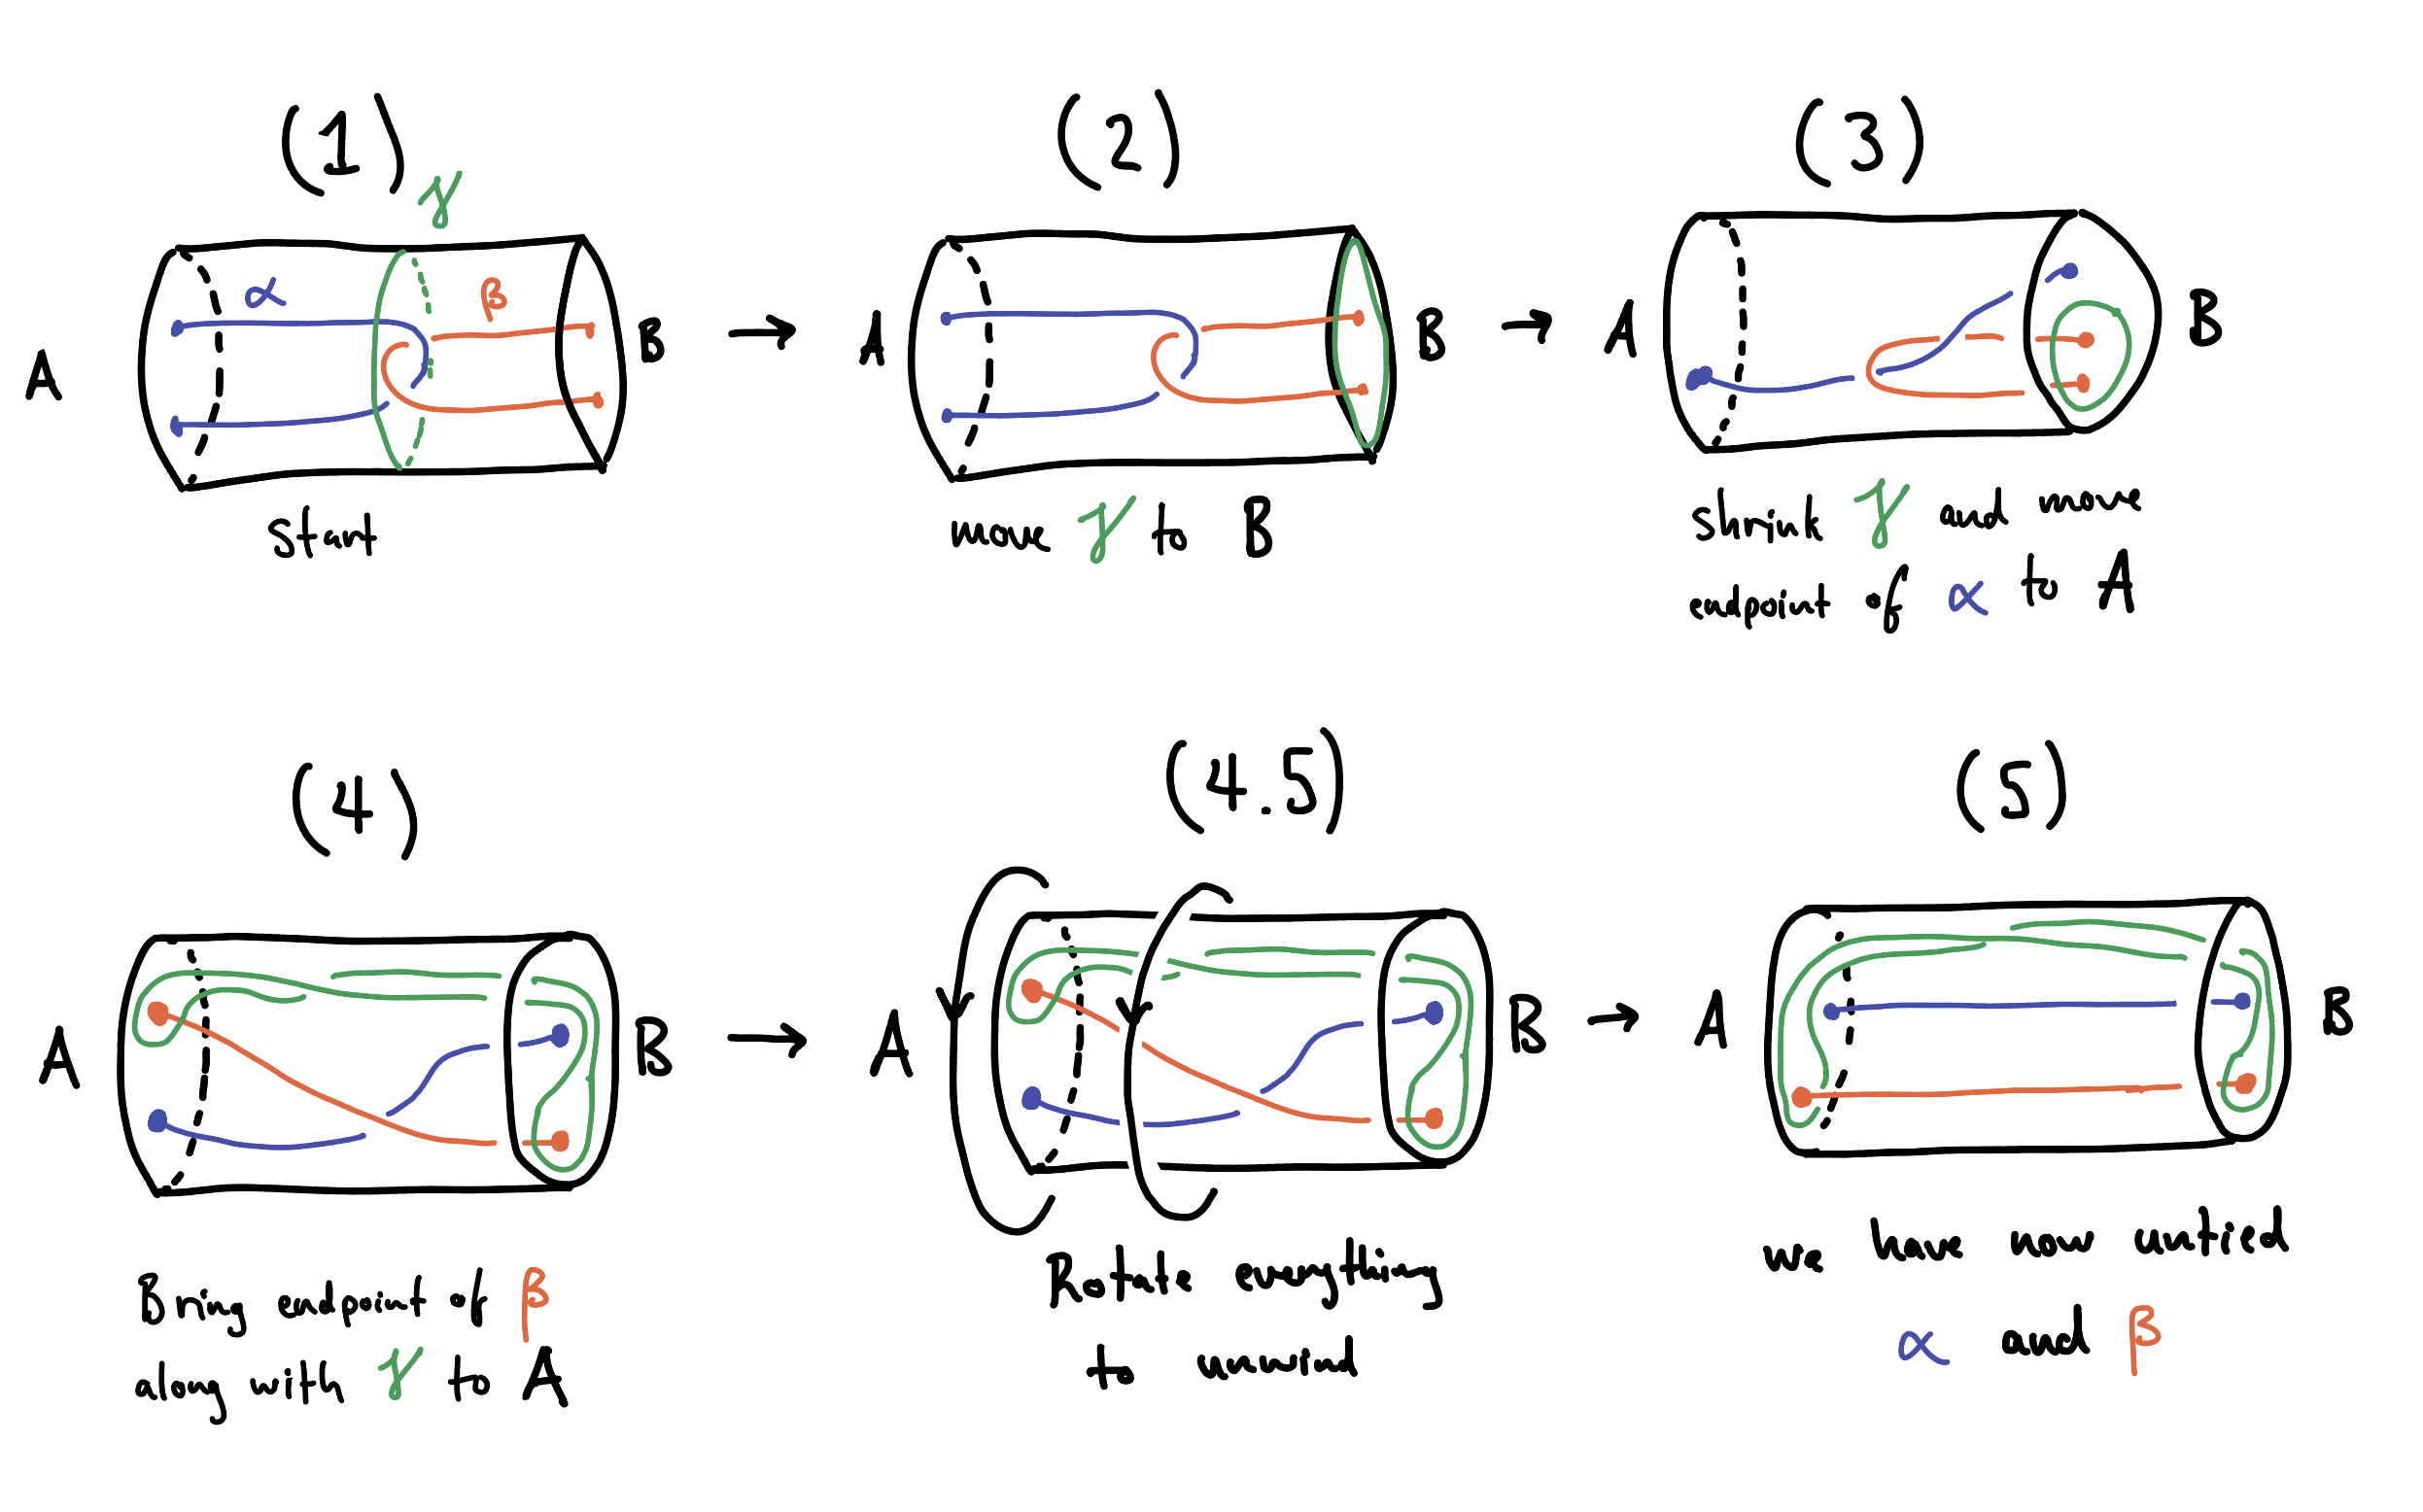 (1)
(2)
(3)
γ
α
β
A
B
→
A
B
→
A
B
start
move γ to B
shrink γ and move
endpoint of α to A
(4)
(4.5)
(5)
A
B
→
A
B
→
A
B
Bring endpoint of β
along with γ to A
Rotate everything
to unwind
we have now untied
α and β